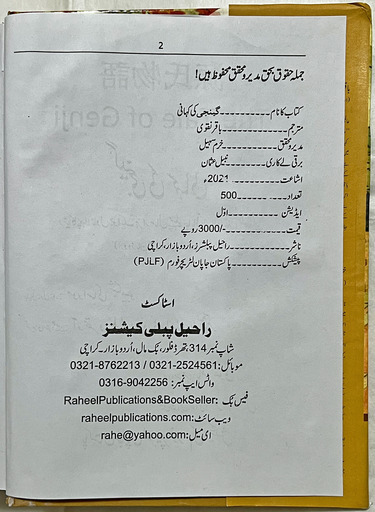 2
جملہ حقوق بحق مدیر و محقق محفوظ ہیں!
کتاب کا نام۔۔۔۔۔۔۔۔۔۔گینجی کی کہانی
مترجم۔۔۔۔۔۔۔۔۔۔باقر نقوی
مدیر و محقق۔۔۔۔۔۔۔۔۔۔خرم سہیل
برقی لے کاری۔۔۔۔۔۔۔۔۔۔نبیل عثمان
اشاعت۔۔۔۔۔۔۔۔۔۔2021ء
تعداد۔۔۔۔۔۔۔۔۔۔500
ایڈیشن۔۔۔۔۔۔۔۔۔۔اوّل
قیمت۔۔۔۔۔۔۔۔۔۔3000/-روپے
ناشر۔۔۔۔۔۔۔۔۔۔راحیل پبلشرز، اُردو بازار، کراچی
پیشکش۔۔۔۔۔۔۔۔۔۔پاکستان جاپان لٹریچر فورم (PJLF)
اسٹاکسٹ
راحیل پبلی کیشنز
شاپ نمبر 314 تھرڈ فلور، بک مال، اُردو بازار۔ کراچی
موبائل: 0321-2524561 / 0321-8762213
واٹس ایپ نمبر: 0316-9042256
فیس بک: RaheelPublications&BookSeller
ویب سائٹ: raheelpublications.com
ای میل: rahe@yahoo.com
源氏物語
The Tale of Genji